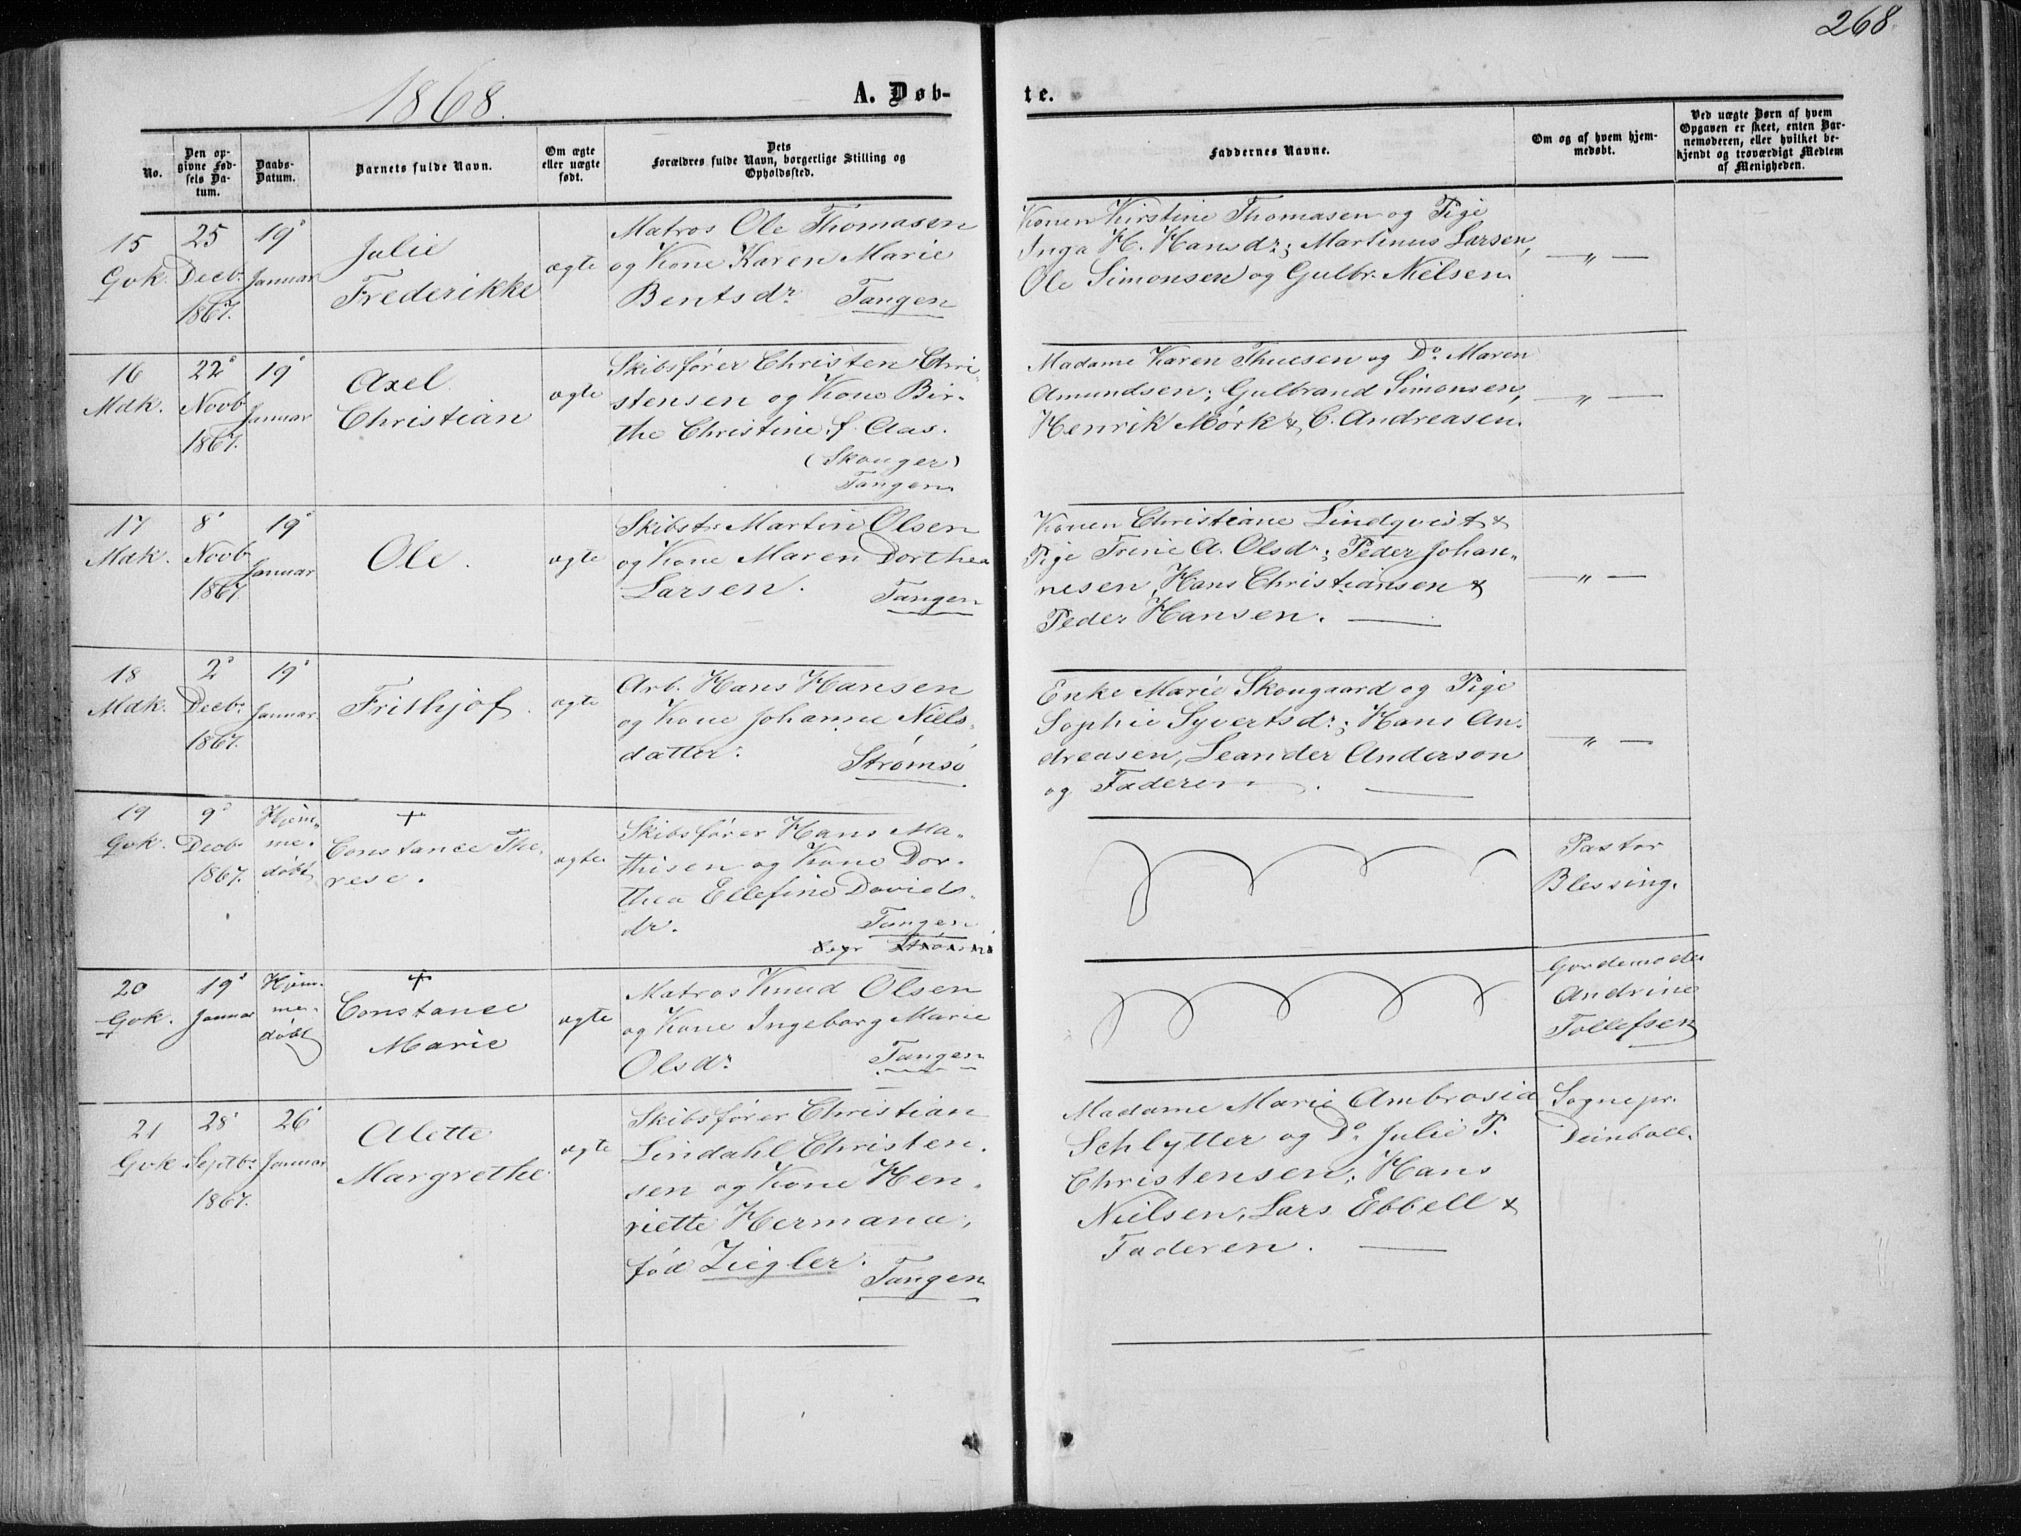 268
1868.
A. Døb-
te.
No.
Den op-
givne Fød-
sels Da-
tum.
Daabs-
Datum.
Barnets fulde Navn.
Om ægte
eller uægte
født.
Dets
Forældres fulde Navn, borgerlige Stilling og
Opholdssted.
Faddernes Navne.
Om og af hvem hjem-
medøbt.
Ved uægte Børn af hvem
Opgaven er skeet, enten Bar-
nemoderen, eller hvilket be-
kjendt og troværdigt Medlem
af Menigheden.
15
Gvk.
25
Decbr
1867.
19
Januar
Julie
Frederikke
ægte
Matros Ole Thomasen
og Kone Karen Marie
Bentsdr Tangen
Konen Kirstine Thomasen og Pige
Inga H. Hansdr; Martinus Larsen,
Ole Simonsen og Gulbr. Nielsen.
— „ —
16
Mdk.
22
Novb
1867.
19
Januar
Axel
Christian
ægte
Skibsfører Christen Chri-
stensen og Kone Bir-
the Christine, f. Aas.
(Skouger)
Tangen
Madame Karen Thuesen og Do Maren
Amundsen; Gulbrand Simonsen,
Henrik Mørk & C. Andreasen.
— „ —
17
Mdk.
8
Novb
1867
19
Januar
Ole.
ægte
Skibstr Martin Olsen
og Kone Maren Dorthea
Larsen. Tangen
Konen Christiane Lindqvist &
Pige Trine A. Olsdr; Peder Johan-
nesen, Hans Christiansen &
Peder Hansen. —
— „ —
18
Mdk.
2
Decbr
1867.
19
Januar
Frithjof.
ægte
Arb. Hans Hansen
og Kone Johanne Niels-
datter. Strømsø
Enke Marie Skougaard og Pige
Sophie Syvertsdr; Hans An-
dreasen, Leander Anderson
og Faderen. —
— „ —
19
Gvk.
9
Decbr
1867.
Hjem-
me-
døbt
+
Constance The-
rese.
ægte
Skibsfører Hans Ma-
thisen og Kone Dor-
thea Ellefine Davids-
dr. Tangen
Pastor
Blessing.
20
Gvk.
19
Januar
Hjem-
me-
døbt
+
Constance
Marie
ægte
Matros Knud Olsen
og Kone Ingeborg Marie
Olsdr Tangen
Gordemoder
Andrine
Tollefsen
21
Gvk
28
Septbr
1867.
26
Januar
Alette
Margrethe
ægte
Skibsfører Christian
Lindahl Christen-
sen og Kone Hen-
riette Hermana,
fød Ziegler.
Tangen
Madame Marie Ambrosia
Schlytter og Do Julie P.
Christensen; Hans
Nielsen, Lars Ebbell &
Faderen. —
Sognepr.
Deinboll.